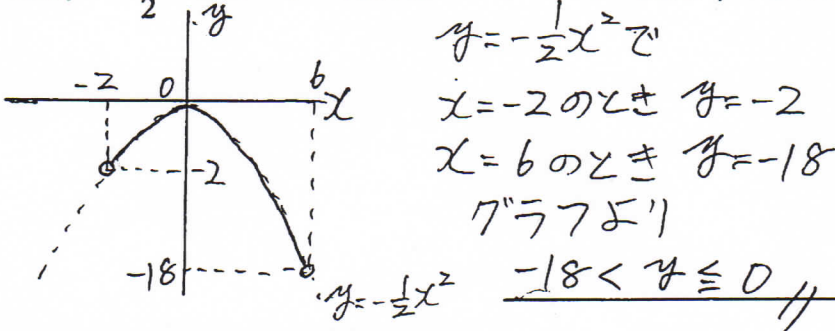 2
y
-2 0 6
x
-2
-18
y=-1/2x²
y=-1/2x²で
x=-2のとき y=-2
x=6のとき y=-18
グラフより
-18<y≦0